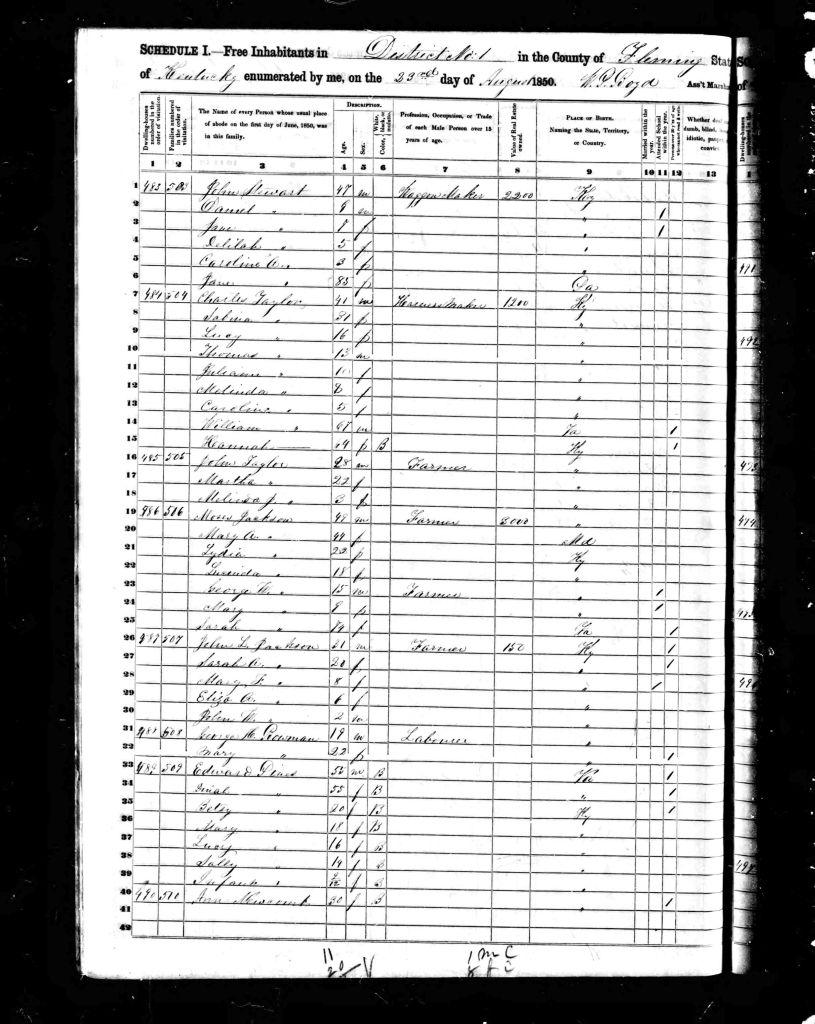 SCHEDULE I.—Free Inhabitants in District No. 1 in the County of Fleming State
of Kentucky enumerated by me, on the 23rd day of August 1850. Ass't Marshal
Dwelling-houses numbered in the order of visitation. Families numbered in the order of visitation. The Name of every Person whose usual place of abode on the first day of June, 1850, was in this family. DESCRIPTION. Age. Sex. White, black, or mulatto. Color, Profession, Occupation, or Trade of each Male Person over 15 years of age. Value of Real Estate owned. PLACE OF BIRTH. Naming the State, Territory, or Country. Married within the year. Attended School within the year. Whether deaf dumb, blind, idiotic,
1 2 3 4 5 6 7 8 9 10 11 12 13 1
1 483 503 John Stewart 47 m Waggon Maker 2200 Ky
2 Daniel " 9 m " 1
3 Jane " 7 f " 1
4 Delilah " 5 f "
5 Caroline A. " 3 f "
6 Jane " 83 f
7 484 504 Charles Taylor 41 m Maker 1200 Ky
8 Salina " 31 f "
9 Lucy " 16 f "
10 Thomas " 13 m "
11 Juliann " 10 f "
12 Melinda " 8 f "
13 Caroline " 5 f "
14 William " 67 m Va 1
15 Hannah f B Ky 1
16 485 505 John Taylor 28 m Farmer "
17 Martha " 22 f "
18 Melissa J. " 3 f "
19 486 506 Moses Jackson 49 m Farmer 3000 "
20 Mary A. " 44 f Md
21 Lydia " 22 f Ky
22 Lucinda " 18 f "
23 George W. " 15 m Farmer " 1
24 Mary " 8 f " 1
25 Sarah " f Va 1
26 487 507 John L. Jackson 21 m Farmer 150 Ky 1
27 Sarah A. " 20 f " 1
28 Mary F. " 8 f " 1
29 Eliza A. " 6 f "
30 John W. " 2 m "
31 488 508 George H. 19 m Labourer "
32 Mary " 22 f " 1
33 489 509 Edward 55 m B Va 1
34 " 55 f B " 1
35 Betsy " 20 f B Ky 1
36 Mary " 18 f B "
37 Lucy " 16 f B "
38 Sally " 14 f B "
39 Infant " f B "
40 490 510 Ann Newcomb 30 f B " 1
41
42
11
20
1 m C
8 f C